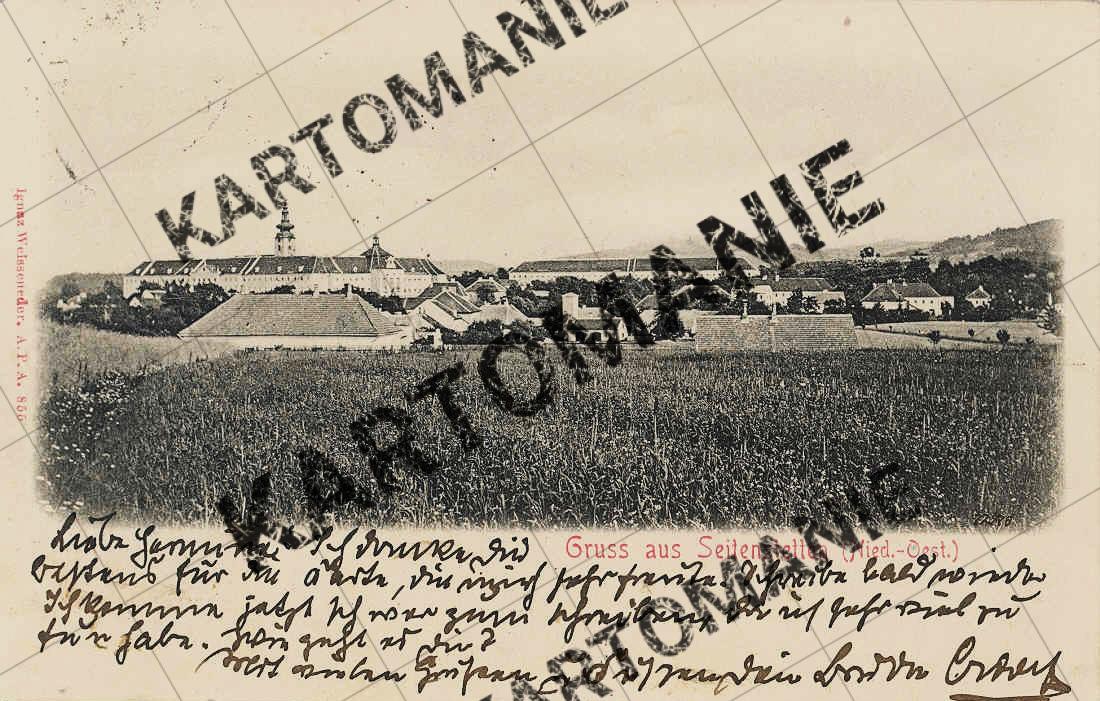 KARTOMANIE
KARTOMANIE
KARTOMANIE
KARTOMANIE
Ignaz Weisseneder. A. P. A. 855
Gruss aus Seitenstetten (Nied.-Oest.)
Liebe Hermine! Ich danke dir
bestens für die Karte, die mich sehr freute. Schreibe bald wieder
Ich komme jetzt schwer zum schreiben, da ich sehr viel zu
tun habe. Wie geht es dir?
Mit vielen Grüßen u. Küssen dein Bruder